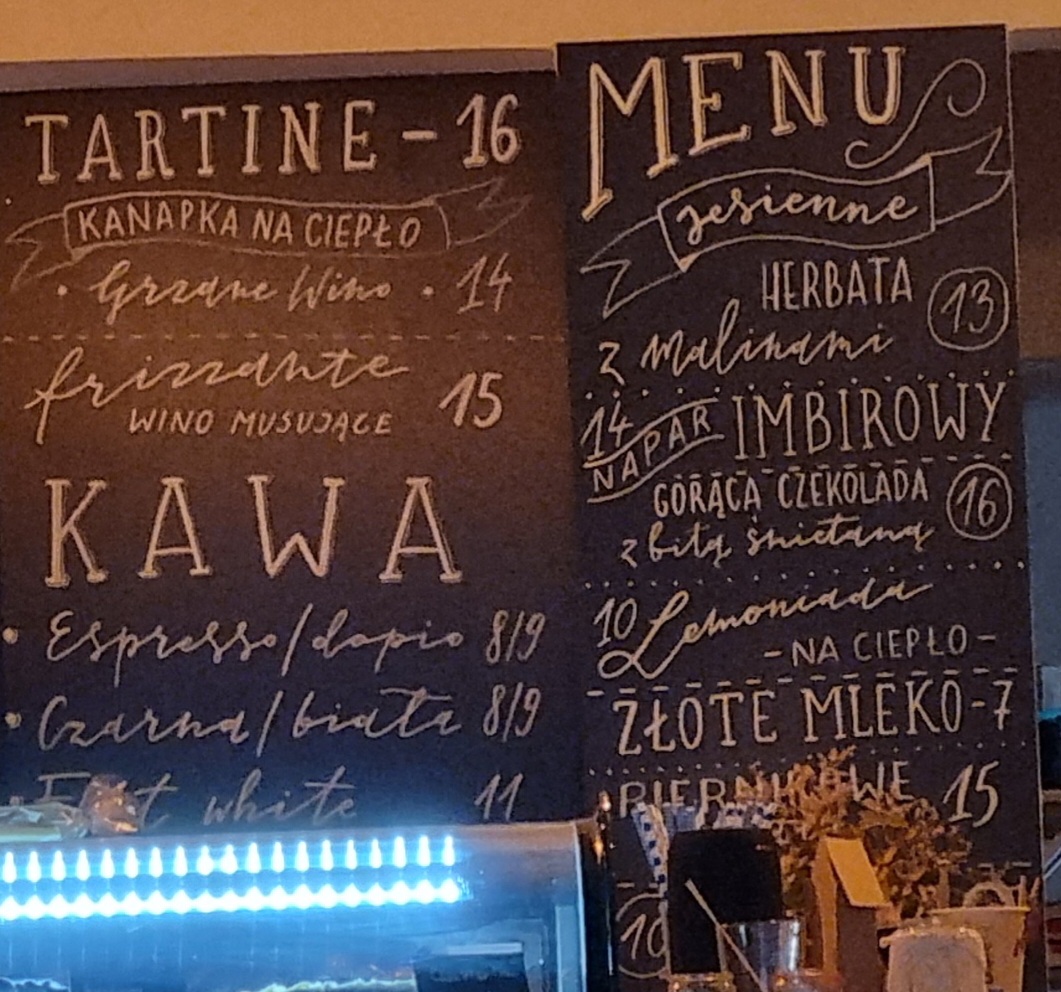 TARTINE - 16
KANAPKA NA CIEPŁO
• Grzane Wino • 14
frizzante 15
WINO MUSUJĄCE
KAWA
• Espresso/dopio 8/9
• Czarna/biała 8/9
white 11
MENU
jesienne
HERBATA 13
z malinami
14 NAPAR IMBIROWY
GORĄCA CZEKOLADA 16
z bitą śmietaną
10 Lemoniada
- NA CIEPŁO -
ZŁOTE MLEKO - 7
15